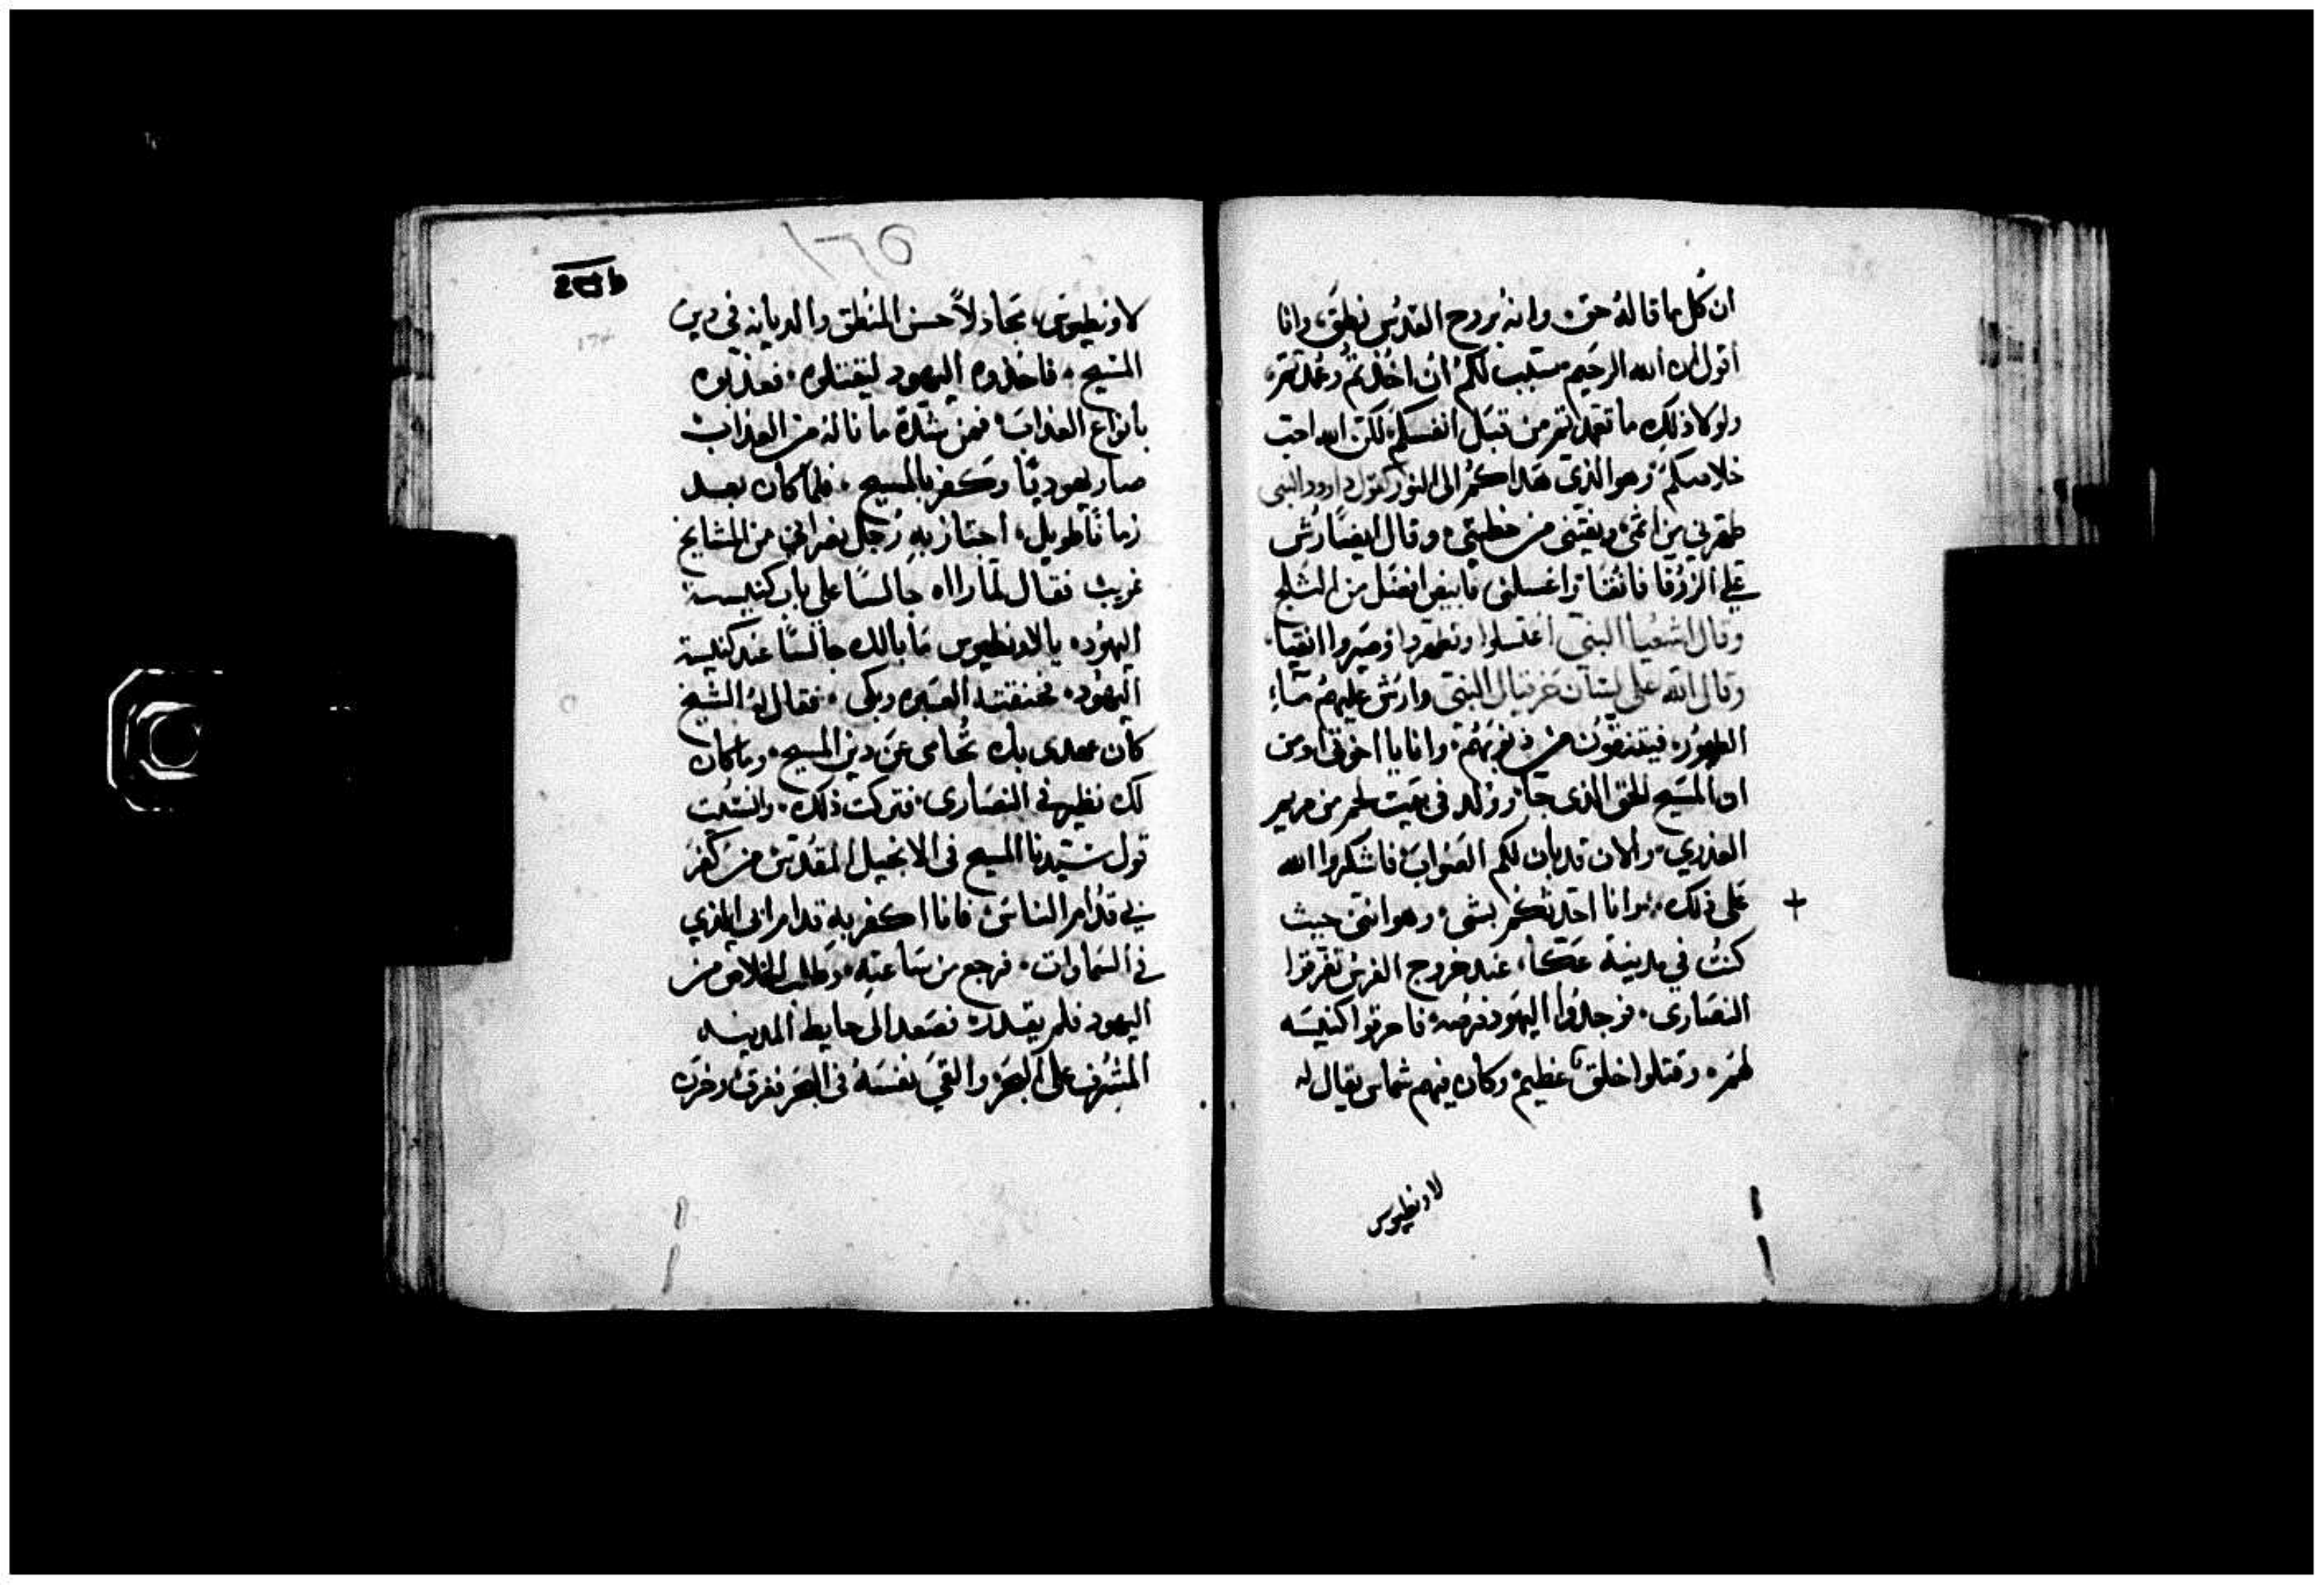 ان كل ما قاله حق، وانه بروح القدس نطق، وانا
اقول ان الله الرحيم سبب لكم ان اخذتم وعمدتم،
ولولا ذلك ما تعمدتم من قبل انفسكم، لكن الله احب
خلاصكم، وهو الذي هداكم الى النور كقول داوود النبي
طهرني من اثمي ونقيني من خطيتي، وقال ايضًا رش
علي الزوفا فانقا واغسلني فابيض افضل من الثلج
وقال اشعيا النبي اغتسلوا وتطهروا وصيروا انقيا،
وقال الله على لسان حزقيال النبي وارش عليهم ماء
الطهور، فيتنقون من ذنوبهم، وانا يا اخوتي اومن
ان المسيح الحق الذي جا وولد في بيت لحم من مريم
العذري، والان قد بان لكم الصواب، فاشكروا الله
على ذلك، وانا احدثكم بشي، وهو انني حيث +
كنت في مدينة عكا، عند خروج الفرس تفرقوا
النصارى، فوجدوا اليهود فرصه، فاحرقوا كنيسه
لهم، وقتلوا خلقًا عظيم، وكان فيهم شماس يقال له
لاونطيوس
١٧٥
لاونطيوس، مجادلاً حسن المنطق والديانه في دين
المسيح، فاخذوه اليهود ليقتلوه، فعذبوه
بانواع العذاب، فمن شدة ما ناله من العذاب
صار يهوديًا وكفر بالمسيح، فلما كان بعد
زمانًا طويل، اجتاز به رجل نصراني من المشايخ
غريب فقال لما راه جالسًا على باب كنيسة
اليهود، يا لاونطيوس ما بالك جالسًا عند كنيسة
اليهود، فخنقته العبره وبكى، فقال له الشيخ
كان عهدى بك تحامى عن دين المسيح، وما كان
لك نظير في النصارى، فتركت ذلك، وانسيت
قول سيدنا المسيح في الانجيل المقدس من كفر
بي قدام الناس، فانا اكفر به قدام ابي الذي
في السماوات، فرجع من ساعته، وطلب الخلاص من
اليهود فلم يقدر، فصعد الى حايط المدينه
المشرف على البحر، والقي نفسه في البحر فغرق، وخزن